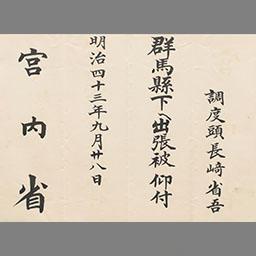 調度頭長﨑省吾
群馬縣下へ出張被 仰付
明治四十三年九月廿八日
宮内省